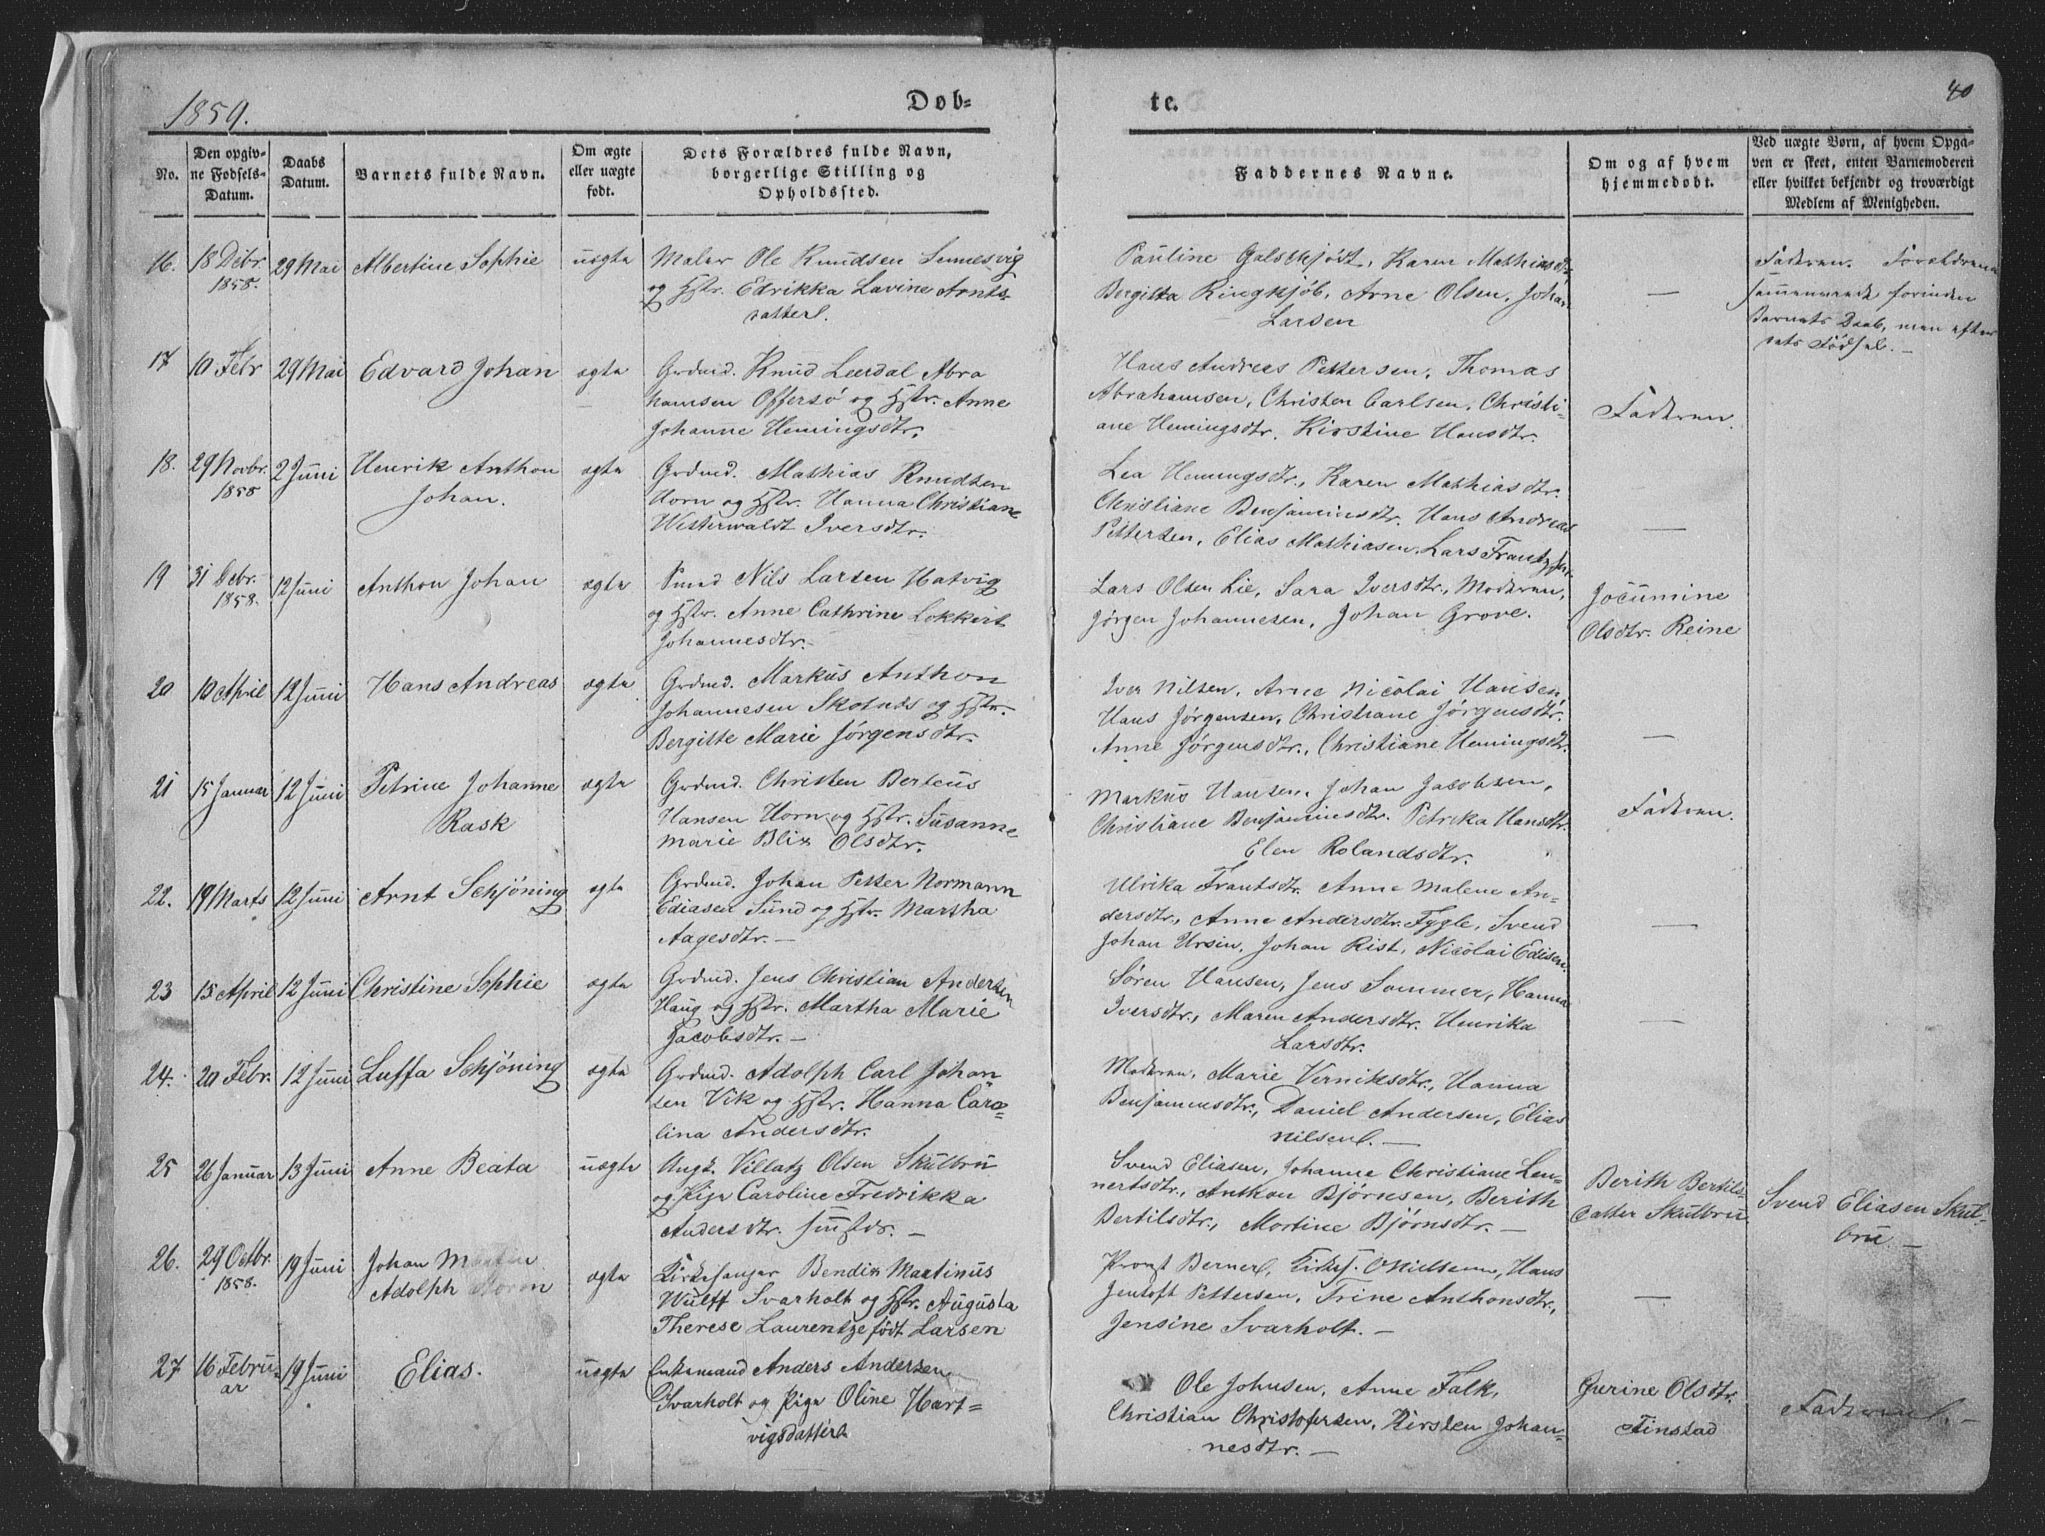 1859.
Døb-
te.
40
No.
Den opgiv-
ne Fødsels-
Datum.
Daabs
Datum.
Barnets fulde Navn.
Om ægte
eller uægte
født.
Dets Forældres fulde Navn,
borgerlige Stilling og
Opholdssted.
Faddernes Navne.
Om og af hvem
hjemmedøbt.
Ved uægte Børn, af hvem Opga-
ven er skeet, enten Barnemoderen
eller hvilket bekjendt og troværdigt
Medlem af Menigheden.
16. 18 Debr. 29 Mai Albertine Sophie uægte Maler Ole Knudsen Sennesvig
1858. og Hstr. Edrikka Lavine Arnts-
datter.
Pauline Galschjødt, Karen Mathiasdt,
Bergitta Ringkjøb, Arne Olsen, Johan —
Larsen
Faderen. Forældrene
sammenviede forinden
Barnets Daab, men efter
dets Fødsel. —
17 10 Febr 29 Mai Edvard Johan ægte Grdmd. Knud Leerdal Abra
hamsen Offersø og Hstr. Anne
Johanne Hemingsdtr.
Hans Andreas Pettersen, Thomas
Abrahamsen, Christen Carlsen, Christi-
ane Hemingsdtr. Kirstine Hansdtr.
Faderen.
18. 29 Novbr. 2 Juni Henrik Anthon ægte Grdmd. Mathias Knudsen
1858 Johan. Horn og Hstr. Hanna Christiane
Westerwaldt Iversdtr.
Lea Hemingsdtr., Karen Mathiasdtr.
Christiane Benjaminsdtr. Hans Andreas
Pettersen, Elias Mathiasen, Lars —
19 31 Debr. 12 Juni Anthon Johan ægte Nils Larsen Hatvig
1858. og Hstr. Anne Cathrine Lokkert
Johannesdtr. —
Lars Olsen Lie, Sara Iversdtr., Moderen,
Jørgen Johannesen, Johan Grove.
Jocumine
Olsdtr. Reine
20 10 April 12 Juni Hans Andreas ægte Grdmd. Markus Anthon
Johannesen Skotnes og Hstr.
Bergitte Marie Jørgensdtr.
Iver Nilsen, Arne Nicolai Hansen,
Hans Jørgensen, Christiane Jørgensdtr.
Anne Jørgensdtr., Christiane Hemingsdtr. —
21 15 Januar 12 Juni Petrine Johanne ægte Grdmd. Christen Berteus
Rask Hansen Horn og Hstr. Susanne
Marie Blix Olsdtr.
Markus Hansen, Johan Jacobsen,
Christiane Benjaminsdtr. Petrika Hansdtr.
Elen Rolandsdtr.
Faderen.
22. 19 Marts 12 Juni Arnt Schjøning ægte Grdmd. Johan Petter Normann
Ediasen Sund og Hstr. Martha
Aagesdtr. —
Ulrika Frantsdtr. Anne Malene An-
dersdtr., Anne Andersdtr. Fygle, Svend
Johan Ursin, Johan Rist, Nicolai Edisen. —
23 15 April 12 Juni Christine Sophie ægte Grdmd. Jens Christian Andersen
Haug og Hstr. Martha Marie
Jacobsdtr. —
Søren Hansen, Jens Sommer, Hanna
Iversdtr., Maren Andersdtr. Henrika
Larsdtr. —
24. 20 Febr. 12 Juni Luffa Schjøning ægte Grdmd. Adolph Carl Johan
sen Vik og Hstr. Hanna Caro-
lina Andersdtr.
Moderen, Marie Verniksdtr., Hanna
Benjaminsdtr., Daniel Andersen, Elias
Nilsen. —
25 26 Januar 13 Juni Anne Beata uægte Ungk. Villatz Olsen Skulbru
og Pige Caroline Fredrikka
Andersdtr. —
Svend Eliasen, Johanne Christiane Len-
nertsdtr., Anthon Bjørnsen, Berith
Bertilsdtr., Mortine Bjørnsdtr. —
Berith Bertils-
datter Skulbru
Svend Eliasen Skul-
bru —
26. 29 Octbr. 19 Juni Johan ægte Kirkesanger Bendix Martinus
1858. Adolph Wulff Svarholt og Hstr. Augusta
Therese Laurentze født Larsen
Provst Berner, Hans
Jentoft Pettersen, Trine Anthonsdtr.,
Jensine Svarholt. — —
27 16 Febru- 19 Juni Elias. uægte Enkemand Anders Andersen
ar Svarholt og Pige Oline Hart-
vigsdatter
Ole Johnsen, Anne Falk,
Christian Christofersen, Kirsten Johan-
nesdtr. —
Gurine Olsdtr.
Finstad
Faderen. —